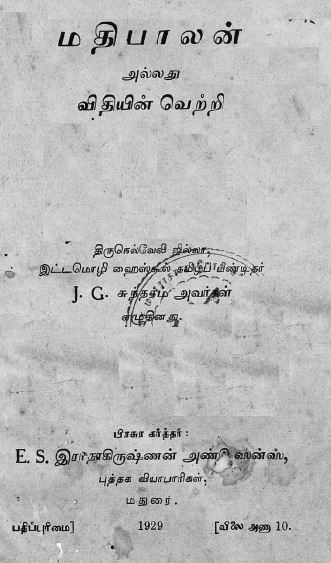 மதிபாலன்
அல்லது
விதியின் வெற்றி
திருநெல்வேலி ஜில்லா,
இட்டமொழி ஹைஸ்கூல் தமிழ்ப்பண்டிதர்
J. G. சுந்தரம் அவர்கள்
எழுதினது.
பிரசுர கர்த்தர்:
E. S. இராமகிருஷ்ணன் அண்டு ஸன்ஸ்,
புத்தக வியாபாரிகள்,
மதுரை.
பதிப்புரிமை] 1929 [விலை அணா 10.